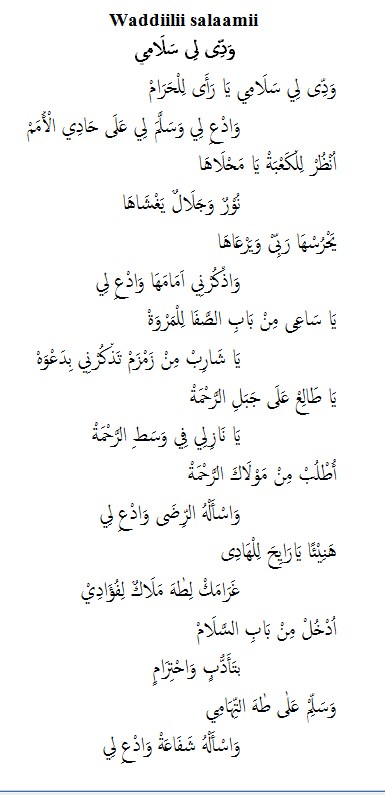 Waddiilii salaamii
وَدِّى لِى سَلَامِي
وَدِّى لِي سَلَامِي يَا رَأَى لِلْحَرَامْ
وَادْعِ لِي وَسَلَّمَ لِي عَلَى حَادِي الْأُمَمْ
اُنْظُرْ لِلْكَعْبَةْ يَا مَحْلَاهَا
نُوْرٌ وَجَلَالٌ يَغْشَاهَا
يَحْرُسْهَا رَبِيّْ وَيَرْعَاهَا
وَاذْكُرْنِي اَمَامَهَا وَادْعِ لِي
يَا سَاعِى مِنْ بَابِ الصَّفَا لِلْمَرْوَةْ
يَا شَارِبْ مِنْ زَمْزَمْ تَذْكُرْنِي بِدَعْوَهْ
يَا طَالِعْ عَلَى جَبَلِ الرَّحْمَةْ
يَا نَازِلِي فِي وَسَطِ الرَّحْمَةْ
أُطْلُبْ مِنْ مَوْلَاكَ الرَّحْمَةْ
وَاسْأَلْهُ الرِّضَى وَادْعِ لِي
هَنِيْئًا يَارَايِحَ لِلْهَادِى
غَرَامَكْ لِطٰهَ مَلَاكٌ لِفُؤَادِيْ
اُدْخُلْ مِنْ بَابِ السَّلَامْ
بِتَأَدُّبٍ وَاحْتِرَامٍ
وَسَلِّمْ عَلٰى طٰهَ التِّهَامِي
وَاسْأَلْهُ شَفَاعَةْ وَادْعِ لِي